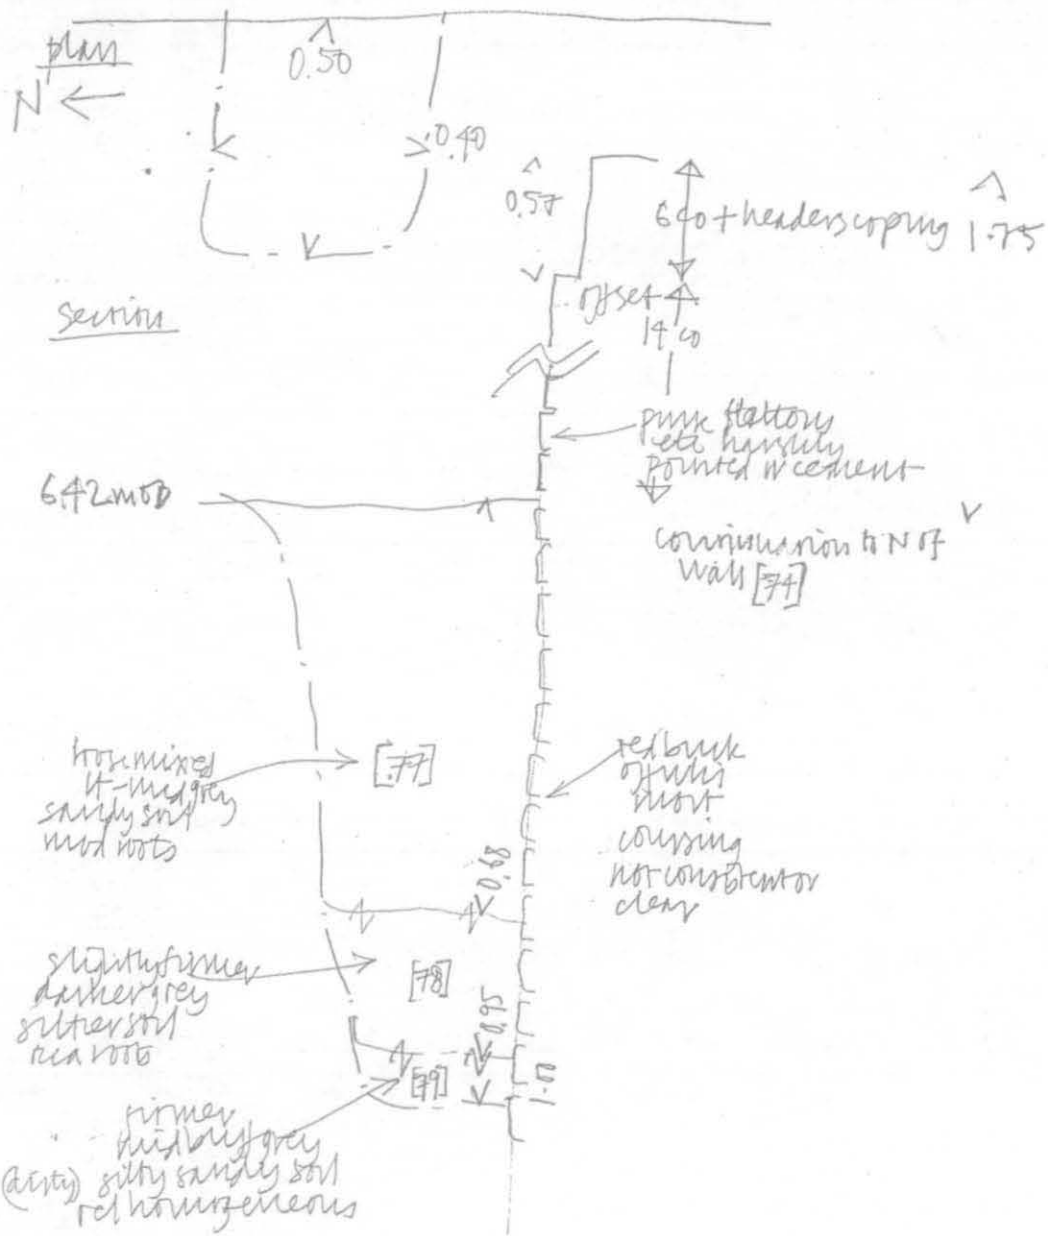 plan
0.50
N
0.40
0.57
6 co + headers coping
1.75
Section
offset
14 co
pink
pointed in cement
6.42mOD
continuation to N of
Wall [74]
mixed
lt-mid grey
sandy soil
mod roots
[77]
red brick
mort
coursing
not consistent or
clear
0.68
slightly firmer
darker grey
siltier soil
roots
[78]
0.95
[79]
1.00
firmer
mid buff grey
(dirty) silty sandy soil
rel homogeneous